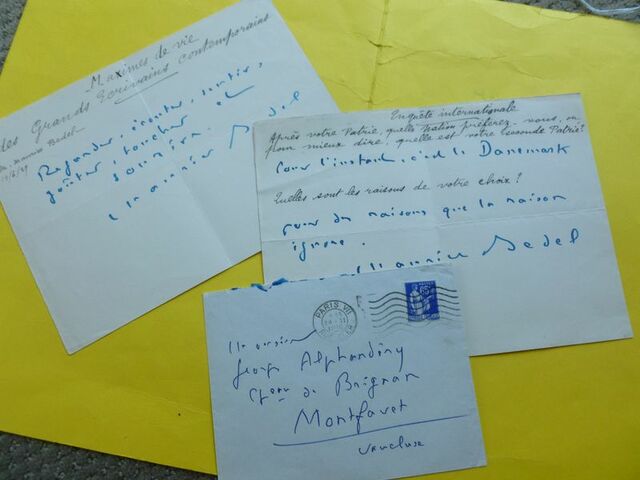 Maximes de vie
des Grands Ecrivains contemporains
Maurice Bedel
Regarder, écouter, sentir,
goûter, toucher et
sourire.
Maurice Bedel
Enquête internationale
Après votre Patrie, quelle Nation préférez-vous, ou
pour mieux dire, quelle est votre seconde Patrie?
Pour l'instant, c'est le Danemark
Quelles sont les raisons de votre choix?
pour des raisons que la raison
ignore.
Maurice Bedel
PARIS VII
POSTES
65c
Monsieur
Alphandéry
de Brignan
Montfavet
Vaucluse